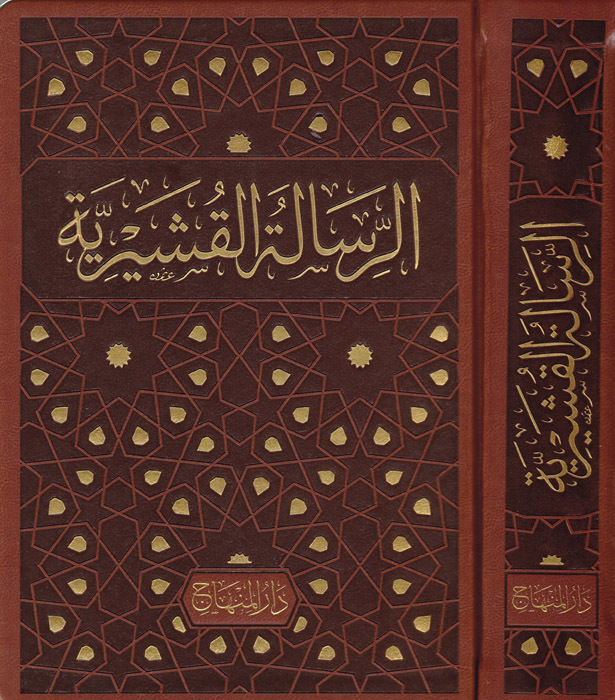 الرِّسَالَةُ القُشَيْرِيَّة
دَارُ المِنْهَاج
الرِّسَالَةُ القُشَيْرِيَّة
دَارُ المِنْهَاج